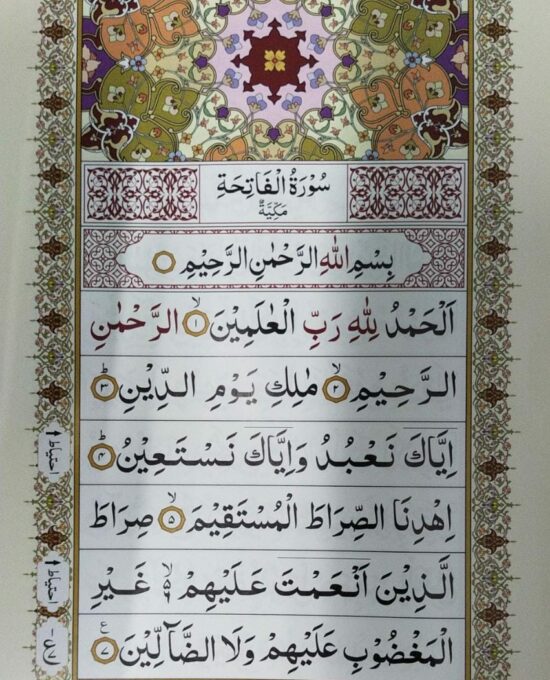 سُوْرَةُ الْفَاتِحَةِ
مَكِّيَّةٌ
بِسْمِ اللهِ الرَّحْمٰنِ الرَّحِيْمِ
اَلْحَمْدُ لِلّٰهِ رَبِّ الْعٰلَمِيْنَ ۙ﴿۱﴾ الرَّحْمٰنِ
الرَّحِيْمِ ۙ﴿۲﴾ مٰلِكِ يَوْمِ الدِّيْنِ ؕ﴿۳﴾
اِيَّاكَ نَعْبُدُ وَاِيَّاكَ نَسْتَعِيْنُ ؕ﴿۴﴾
اِهْدِنَا الصِّرَاطَ الْمُسْتَقِيْمَ ۙ﴿۵﴾ صِرَاطَ
الَّذِيْنَ اَنْعَمْتَ عَلَيْهِمْ ۙ۬ۦ غَيْرِ
الْمَغْضُوْبِ عَلَيْهِمْ وَلَا الضَّآلِّيْنَ ﴿۷﴾ ع
احتیاط
احتیاط